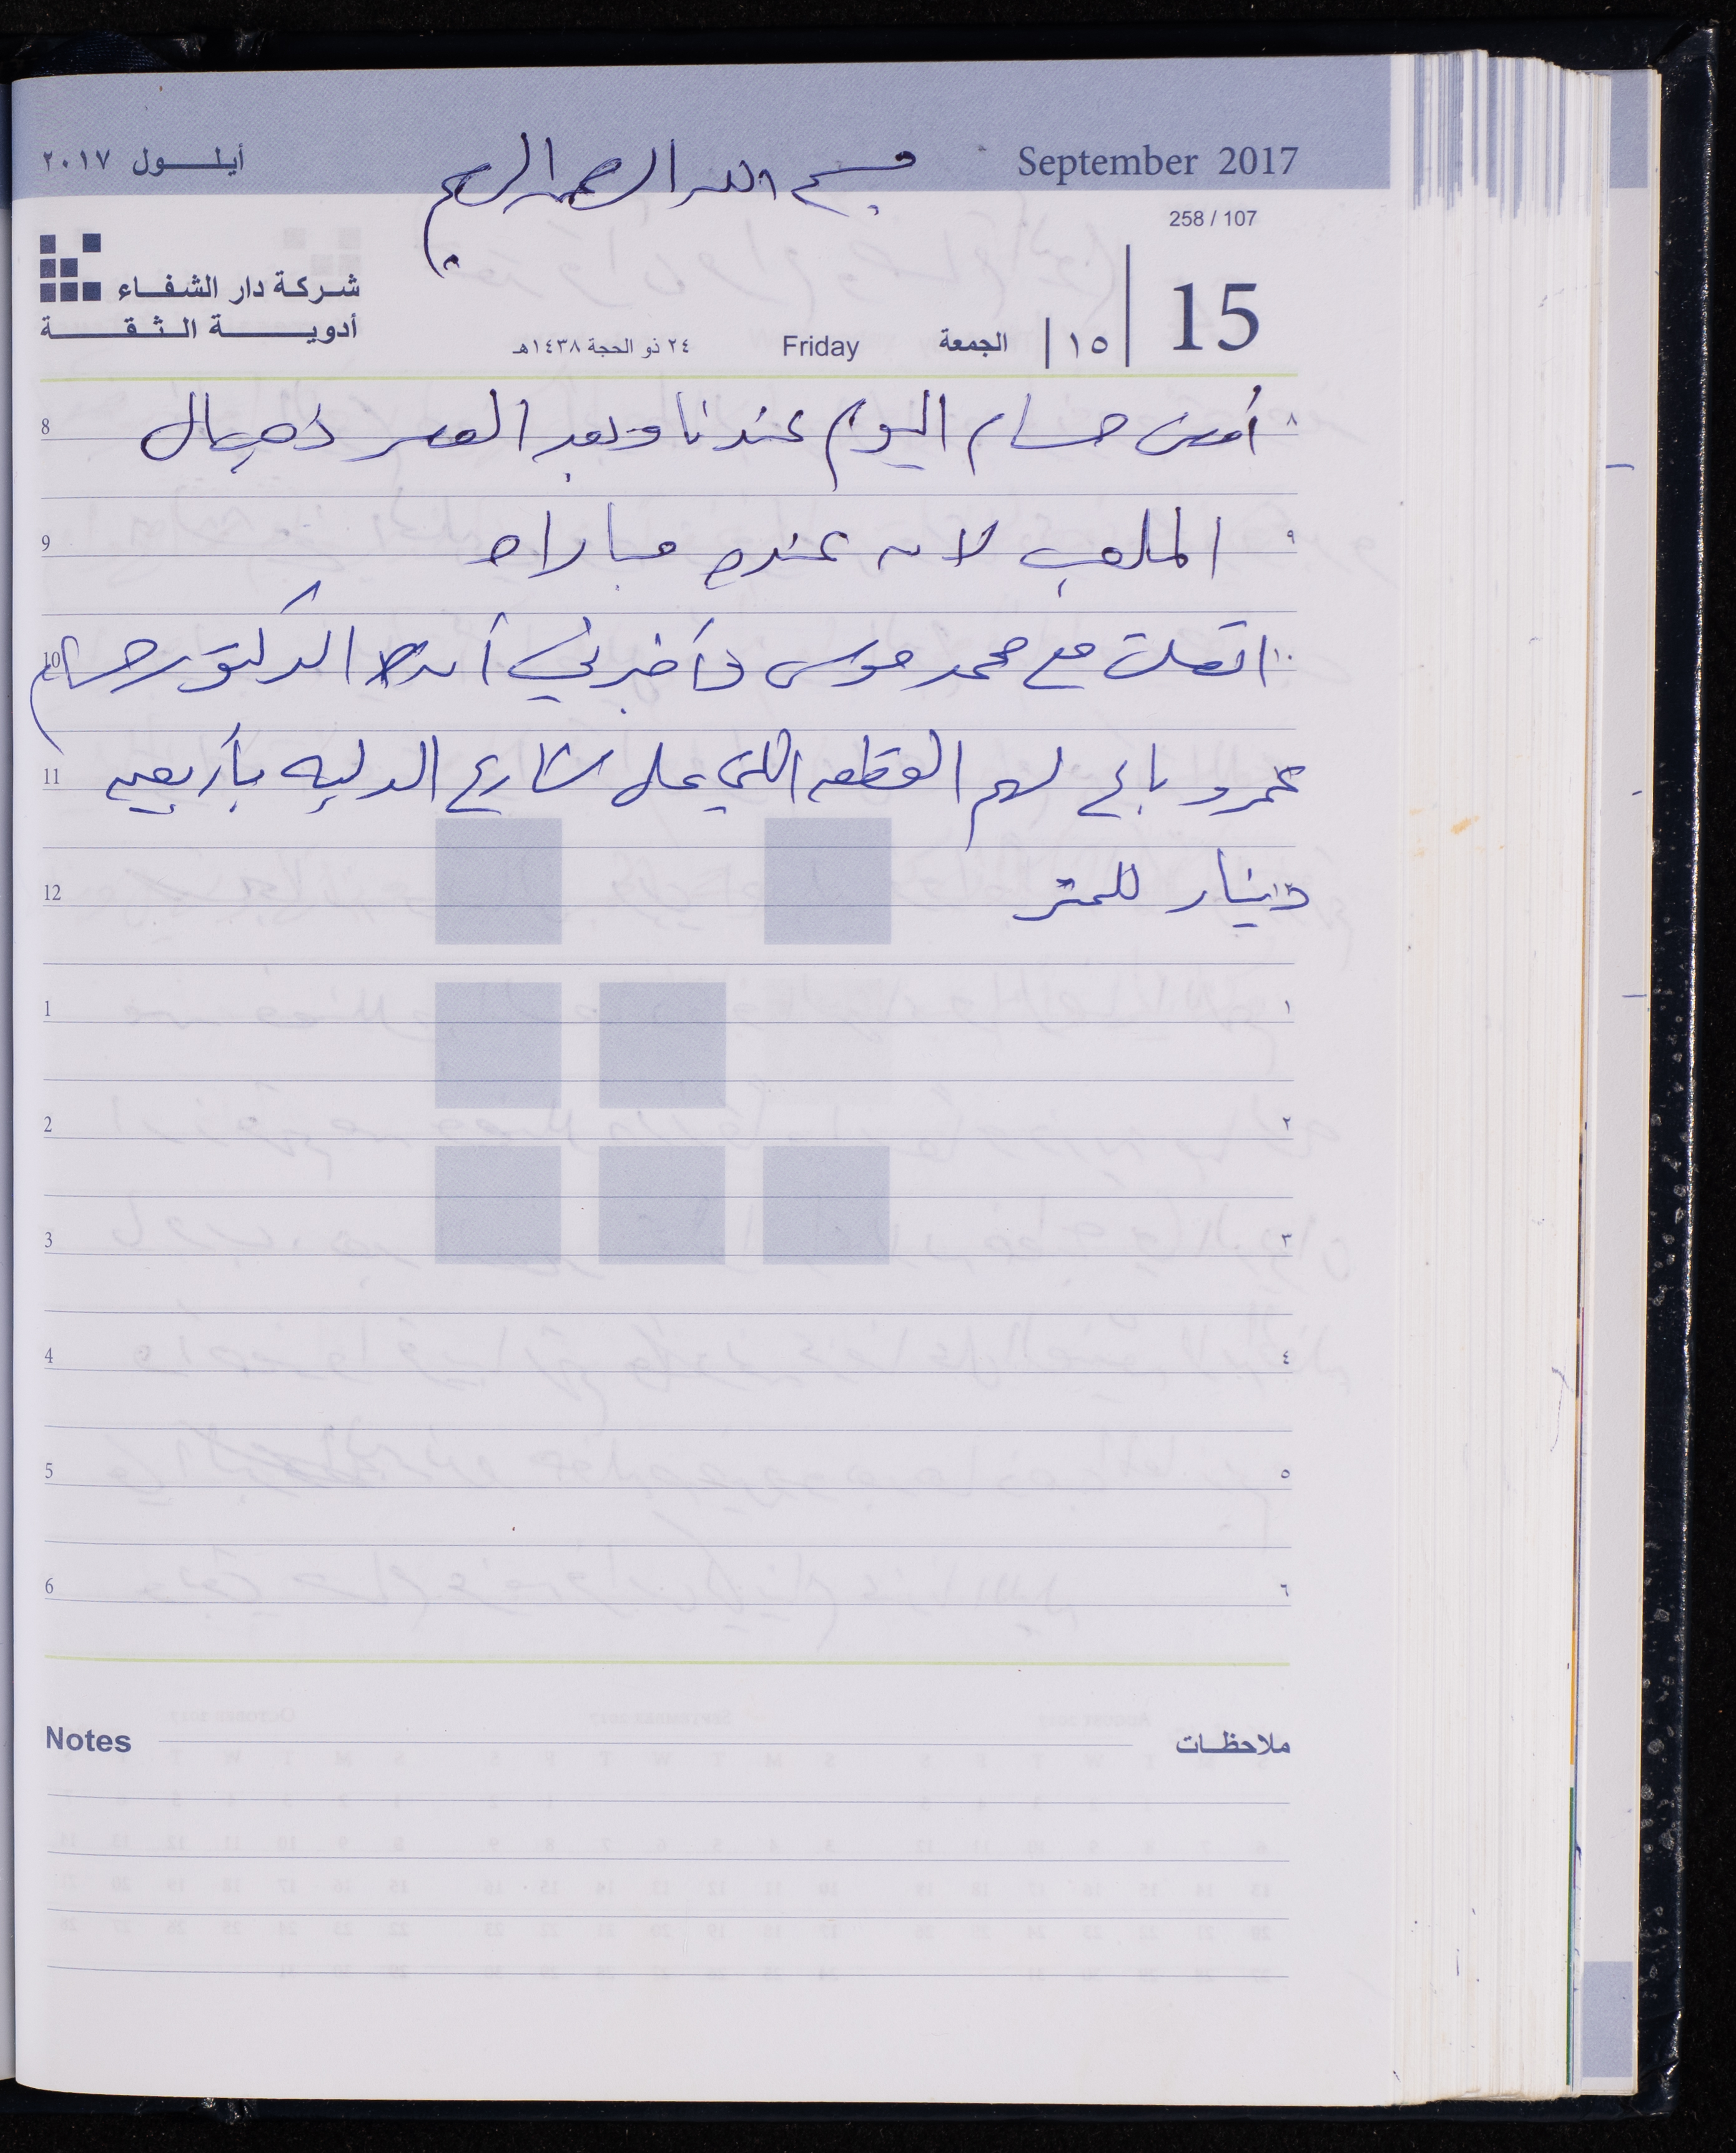 أيلـــول ٢٠١٧
بسم الله الرحمن الرحيم
September 2017
258 / 107
شركة دار الشفاء
أدويــــة الـثـقـــة
٢٤ ذو الحجة ١٤٣٨هـ
Friday
الجمعة
١٥
15
8 أمضى حسام اليوم عندنا وبعد العصر ذهب إلى ٨
9 الملعب لان عنده مباراه ٩
10 اتصلت مع محمد موسى وأخبرني أن الدكتور حسام ١٠
11 عمرو باع لهم القطعه اللي على شارع الدليه بأربعين
12 دينار للمتر
1 ١
2 ٢
3 ٣
4 ٤
5 ٥
6 ٦
Notes ملاحظات